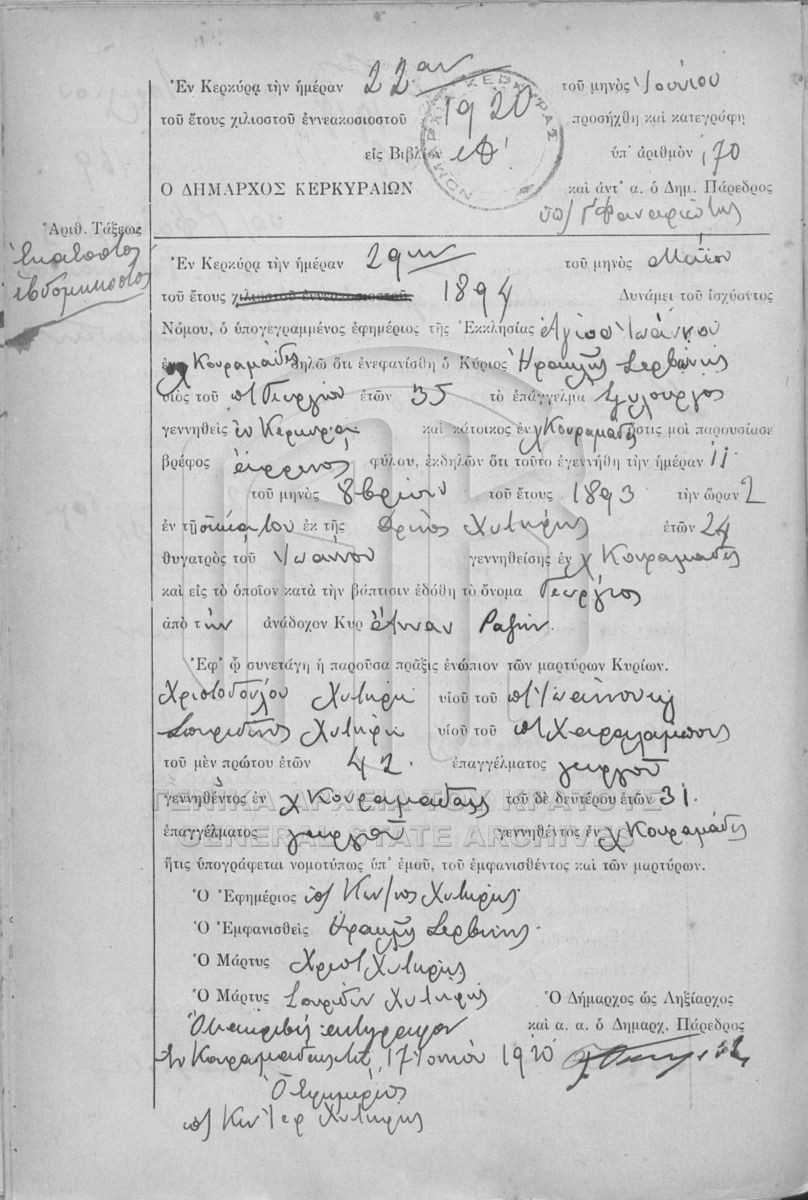 Ἐν Κερκύρᾳ τὴν ἡμέραν 22αν τοῦ μηνὸς Ἰουνίου
τοῦ ἔτους χιλιοστοῦ ἐννεακοσιοστοῦ 1920 προσήχθη καὶ κατεγράφη
εἰς Βιβλίον ὑπ' ἀριθμὸν 170
Ο ΔΗΜΑΡΧΟΣ ΚΕΡΚΥΡΑΙΩΝ καὶ ἀντ' α. ὁ Δημ. Πάρεδρος
Φαναριώτης
Ἀριθ. Τάξεως
Ἑκατοστὸς
ἑβδομηκοστὸς
Ἐν Κερκύρᾳ τὴν ἡμέραν 29ην τοῦ μηνὸς Μαΐου
τοῦ ἔτους χιλιοστοῦ ἐννεακοσιοστοῦ 1894 Δυνάμει τοῦ ἰσχύοντος
Νόμου, ὁ ὑπογεγραμμένος ἐφημέριος τῆς Ἐκκλησίας Ἁγίου Ἰωάννου
χ Κουραμάδες δηλῶ ὅτι ἐνεφανίσθη ὁ Κύριος Ἡρακλῆς Σερβίνης
υἱὸς τοῦ Γεωργίου ἐτῶν 35 τὸ ἐπάγγελμα ξυλουργὸς
γεννηθεὶς ἐν Κερκύρᾳ καὶ κάτοικος ἐν χ Κουραμάδες ὅστις μοὶ παρουσίασε
βρέφος ἄρρενος φύλου, ἐκδηλῶν ὅτι τοῦτο ἐγεννήθη τὴν ἡμέραν 11
τοῦ μηνὸς 8βρίου τοῦ ἔτους 1893 τὴν ὥραν 2
ἐν τῇ οἰκίᾳ του ἐκ τῆς Χυτήρης ἐτῶν 24
θυγατρὸς τοῦ Ἰωάννου γεννηθείσης ἐν χ Κουραμάδες
καὶ εἰς τὸ ὁποῖον κατὰ τὴν βάπτισιν ἐδόθη τὸ ὄνομα Γεώργιος
ἀπὸ τὴν ἀνάδοχον Κυρ Ἄνναν
Ἐφ' ᾧ συνετάγη ἡ παροῦσα πρᾶξις ἐνώπιον τῶν μαρτύρων Κυρίων.
Χριστοδούλου Χυτήρη υἱοῦ τοῦ
Σπυρίδωνος Χυτήρη υἱοῦ τοῦ Χαραλάμπους
τοῦ μὲν πρώτου ἐτῶν 42. ἐπαγγέλματος γεωργοῦ
γεννηθέντος ἐν χ Κουραμάδες τοῦ δὲ δευτέρου ἐτῶν 31.
ἐπαγγέλματος γεωργοῦ γεννηθέντος ἐν χ Κουραμάδες
ΓΕΝΙΚΑ ΑΡΧΕΙΑ ΤΟΥ ΚΡΑΤΟΥΣ
GENERAL STATE ARCHIVES
ἥτις ὑπογράφεται νομοτύπως ὑπ' ἐμοῦ, τοῦ ἐμφανισθέντος καὶ τῶν μαρτύρων.
Ὁ Ἐφημέριος Χυτήρης
Ὁ Ἐμφανισθεὶς Ἡρακλῆς Σερβίνης
Ὁ Μάρτυς Χριστ Χυτήρης
Ὁ Μάρτυς Σπυρίδων Χυτήρης Ὁ Δήμαρχος ὡς Ληξίαρχος
ἀντίγραφον καὶ α. α. ὁ Δημαρχ. Πάρεδρος
Ἐν Κουραμάδες τῇ 17 Ἰουνίου 1920
Ὁ Ἐφημέριος
Χυτήρης